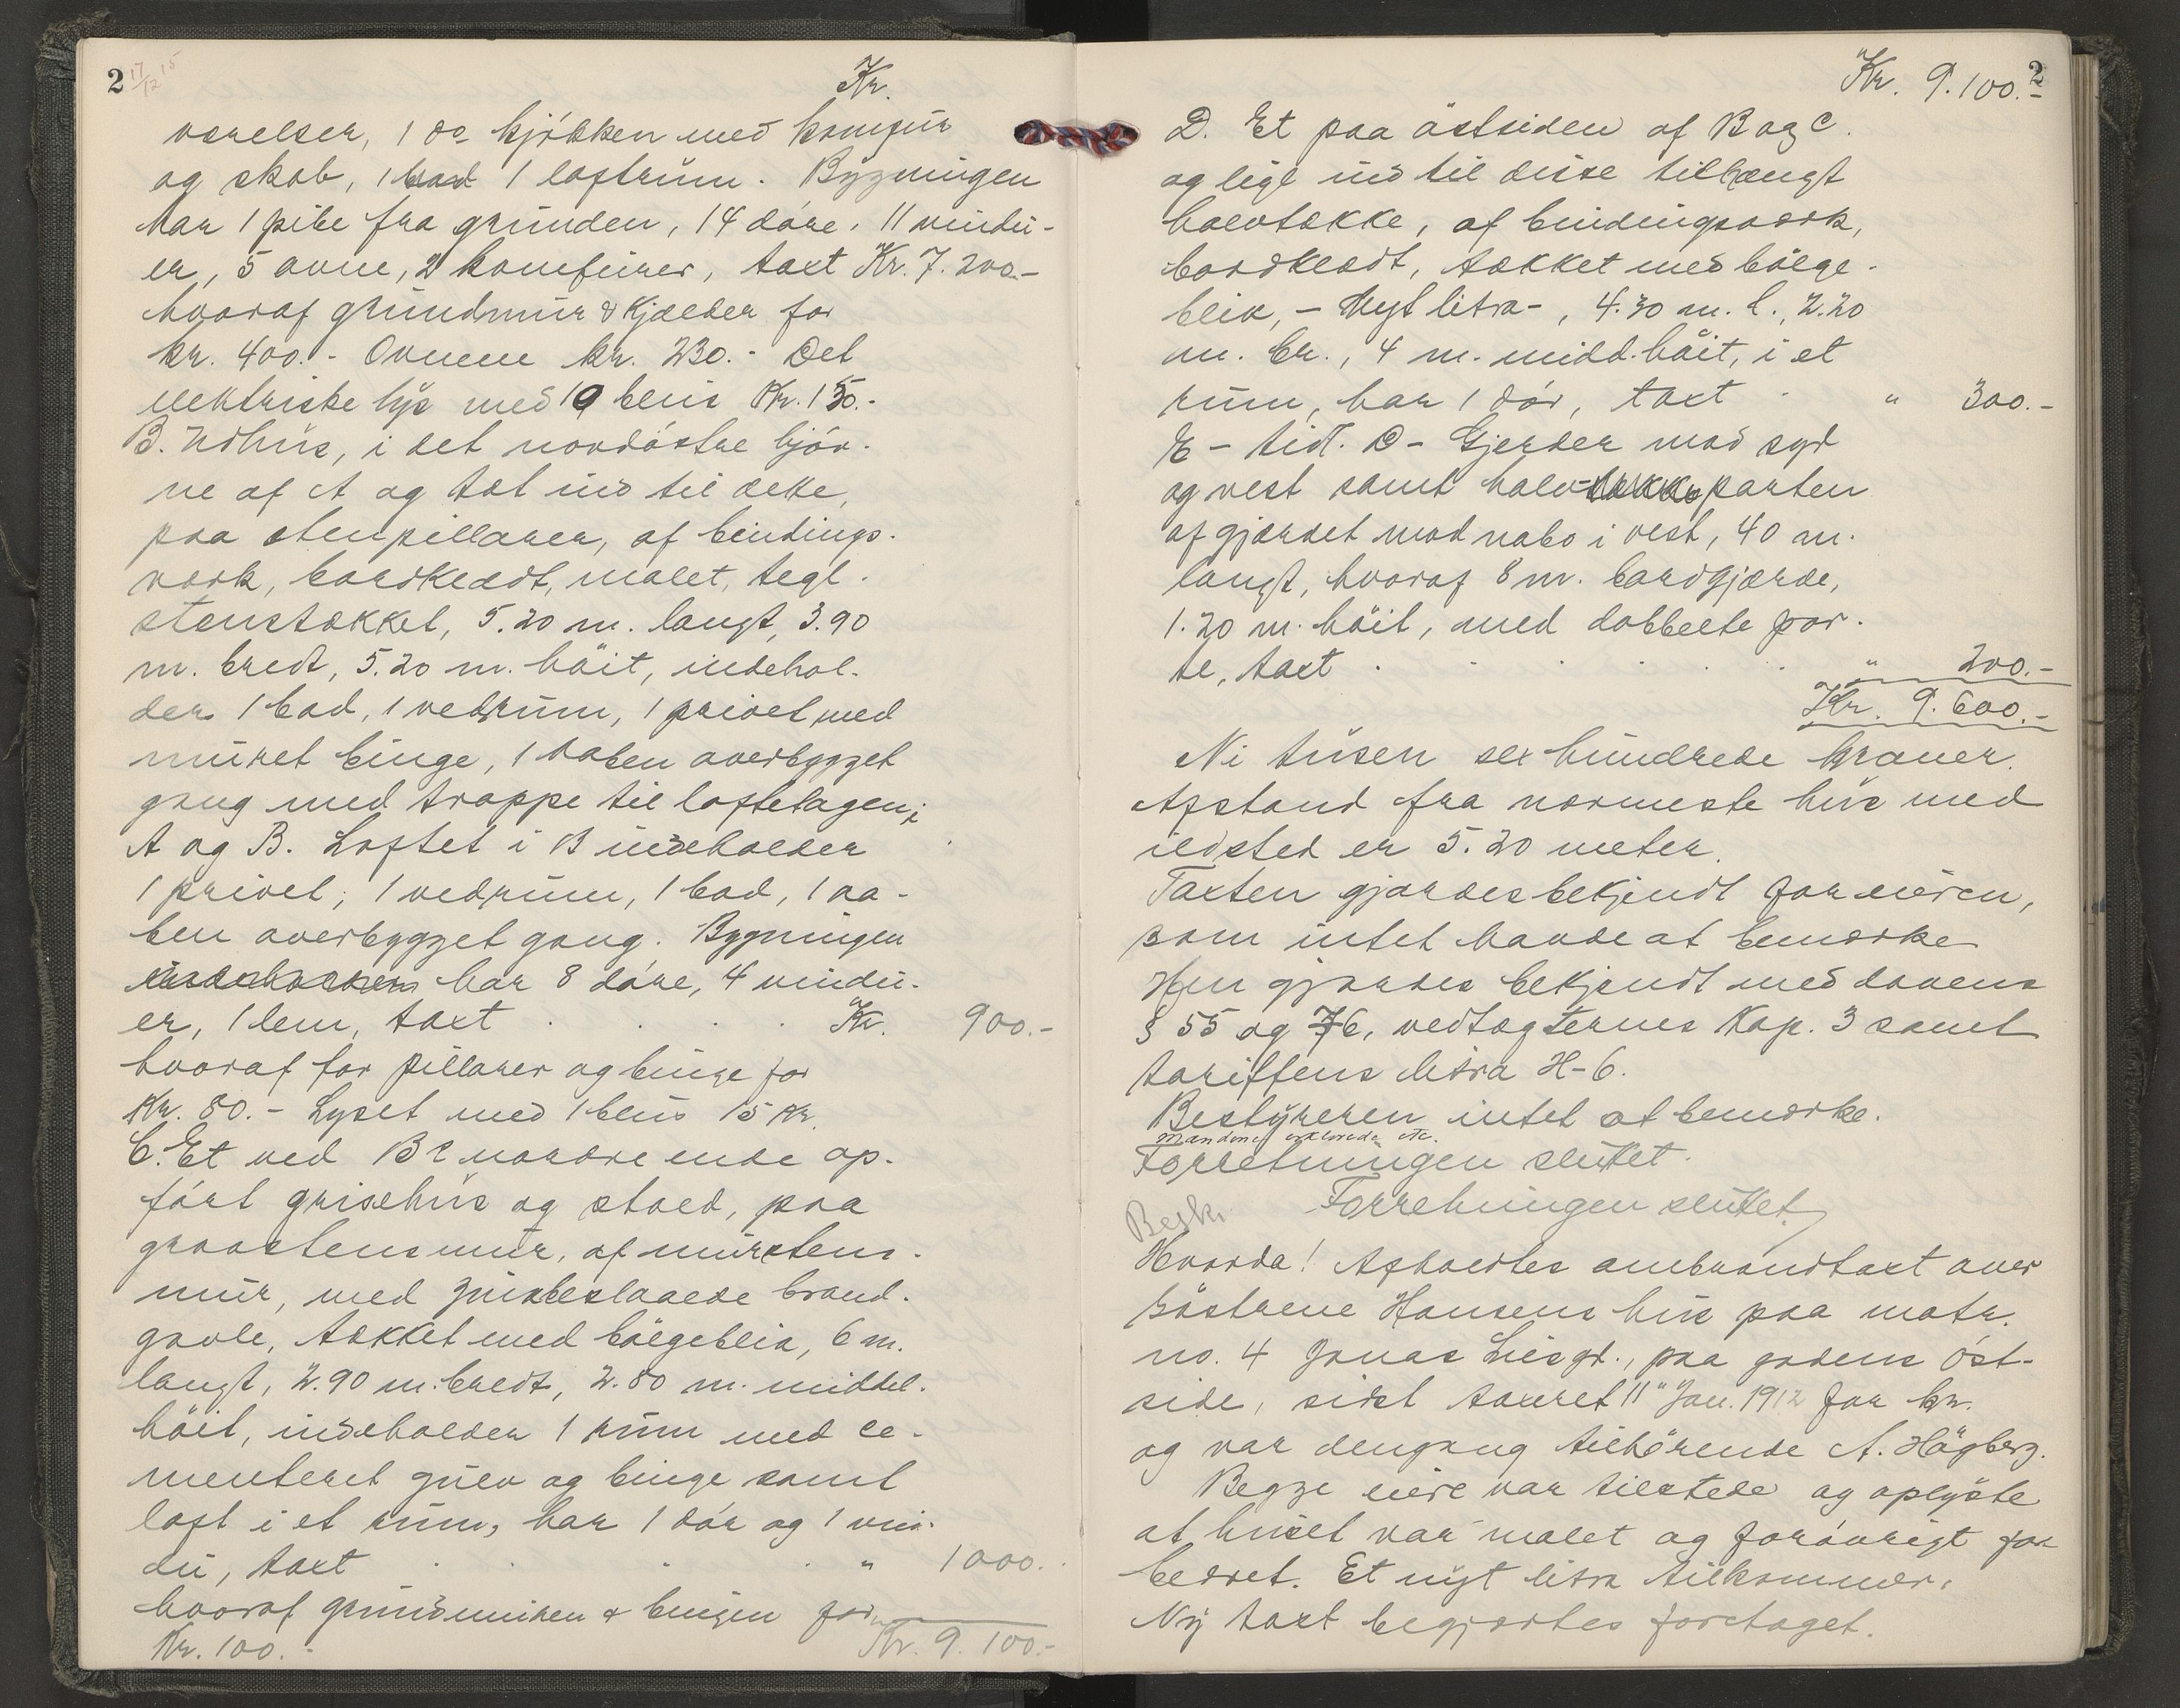 2 17/12 15
Kr.
værelser, 1 do kjøkken med komfur
og skab, 1 bad 1 loftrum. Bygningen
har 1 pibe fra grunden, 14 døre, 11 vindu-
er, 5 ovne, 2 komfurer, taxt Kr. 7.200.-
hvoraf grundmur & Kjælder for
kr. 400.- Ovnene kr. 230.- Det
elektriske lys med 19 blus Kr. 150.-
B. Udhus, i det nordøstre hjør-
ne af A og tæt ind til dette,
paa stenpillarer, af bindings-
værk, bordklædt, malet, tegl-
stenstækket, 5.20 m. langt, 3.90
m. bredt, 5.20 m. høit, indehol-
der 1 bod, 1 vedrum, 1 privet med
muret binge, 1 aaben overbygget
gang med trappe til loftetagen i
A og B. Loftet i B indeholder
1 privet, 1 vedrum, 1 bod, 1 aa-
ben overbygget gang. Bygningen
har 8 døre, 4 vindu-
er, 1 lem, taxt . . . . Kr. 900.-
hvoraf for pillarer og binge for
Kr. 80.- Lyset med 1 blus 15 Kr.
C. Et ved B's nordre ende op-
ført grisehus og stald, paa
graastensmur, af murstens-
mur, med zinkbeslaaede brand-
gavle, tækket med bølgeblik, 6 m.
langt, 2.90 m. bredt, 2.80 m. middel-
høit, indeholder 1 rum med ce-
menteret gulv og binge samt
loft i et rum, har 1 dør og 1 vin-
du, taxt . . . . " 1000.-
hvoraf grundmuren & bingen for
Kr. 100.- Kr. 9.100.-
Kr. 9.100.- 2
D. Et paa østsiden af B og C.
og lige ind til disse tilbængt
halvtække, af bindingsværk,
bordklædt, tækket med bølge-
blik, - Nyt litra -, 4.30 m. l., 2.20
m. br., 4 m. midd. høit, i et
rum, har 1 dør, taxt . " 300.-
E - tidl. D - Gjerder mod syd
og vest samt halvparten
af gjærdet mod nabo i vest, 40 m.
langt, hvoraf 8 m. bordgjærde,
1.20 m. høit, med dobbelte por-
te, taxt . . . . " 200.-
Kr. 9.600.-
Ni tusen sex hundrede kroner.
Afstand fra nærmeste hus med
ildsted er 5.20 meter.
Taxten gjordes bekjendt for eieren,
som intet havde at bemærke
Hun gjordes bekjendt med lovens
§ 55 og 76, vedtægternes Kap. 3 samt
tariffens litra H-6.
Bestyreren intet at bemærke.
Mændene erklærede etc.
Forretningen sluttet.
Forretningen sluttet.
Beskr.
Hvorda! Afholdtes ombrandtaxt over
søstrene Hansens hus paa matr.
no. 4 Jonas Liesgt., paa gadens øst-
side, sidst taxeret 11" Jan. 1912 for kr.
og var dengang tilhørende A. Högberg.
Begge eiere var tilstede og oplyste
at huset var malet og forøvrigt for
bedret. Et nyt litra tilkommer.
Ny taxt begjærtes foretaget.